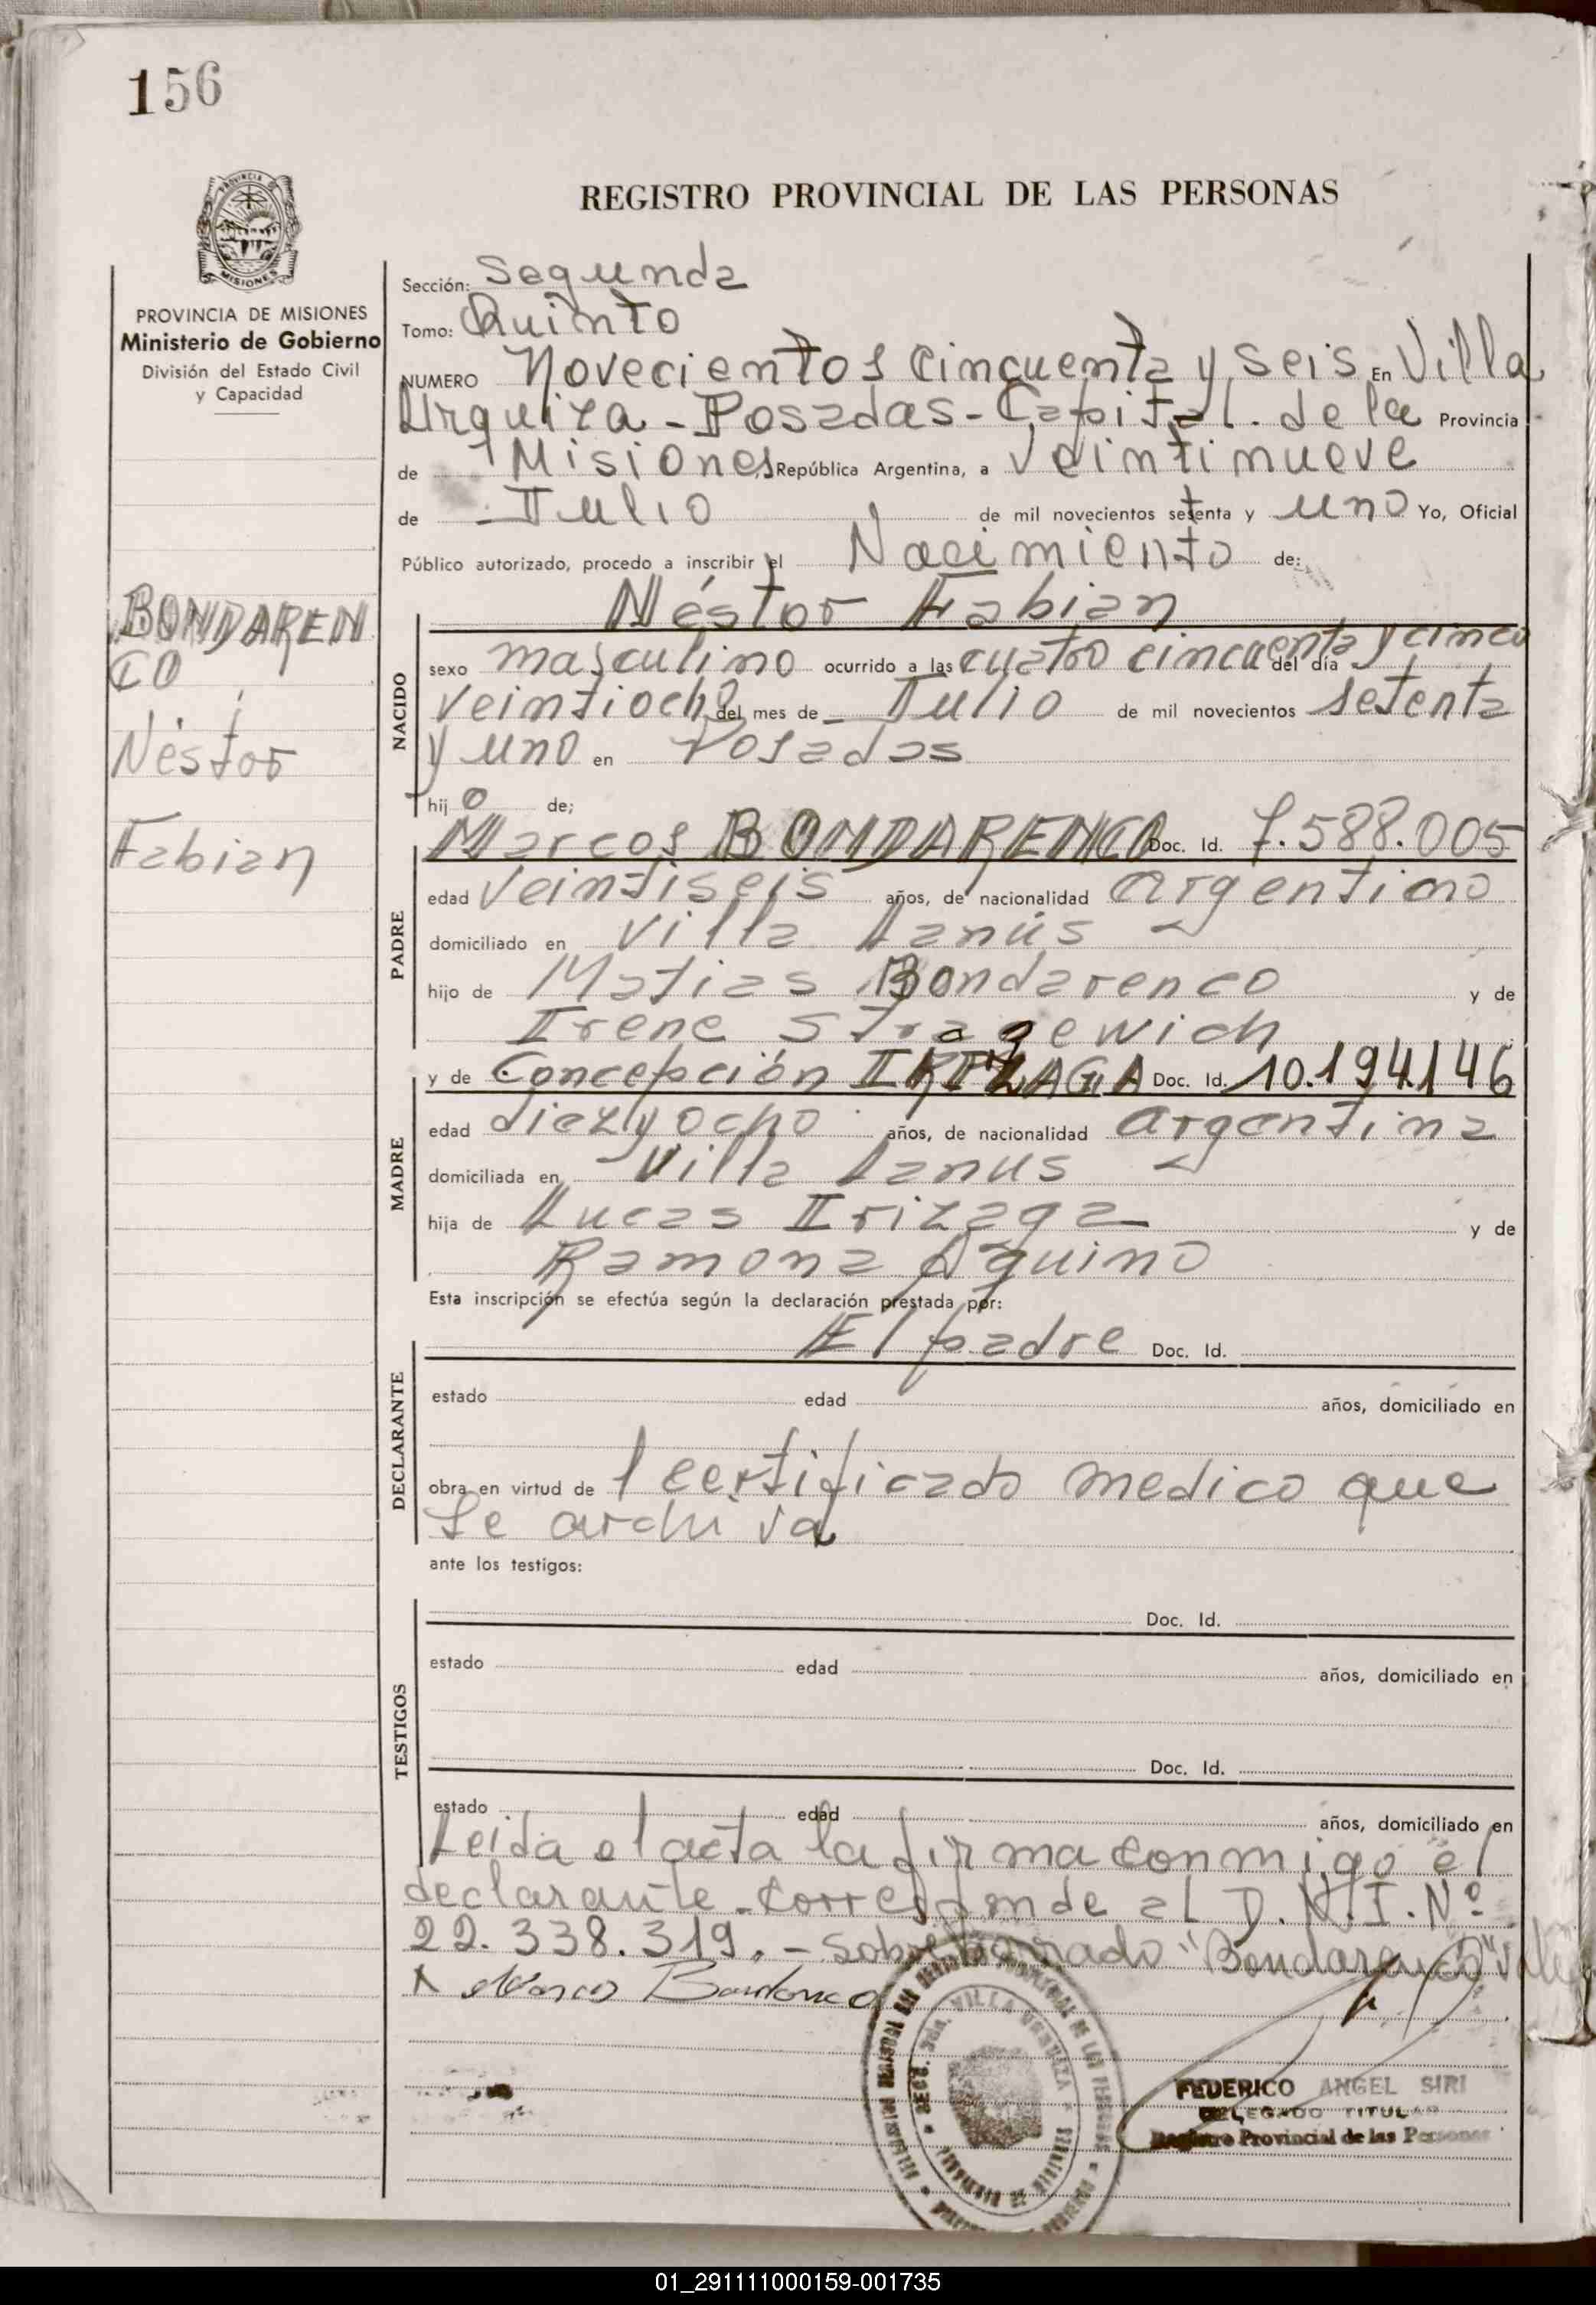 156
REGISTRO PROVINCIAL DE LAS PERSONAS
PROVINCIA DE MISIONES
Ministerio de Gobierno
División del Estado Civil
y Capacidad
BONDAREN
CO
Néstor
Fabian
Sección: Segunda
Tomo: Quinto
NUMERO Novecientos cincuenta y seis En Villa
Urquiza - Posadas - Capital. de la Provincia
de Misiones, República Argentina, a veintinueve
de Julio de mil novecientos setenta y uno Yo, Oficial
Público autorizado, procedo a inscribir el Nacimiento de:
NACIDO
Néstor Fabian
sexo masculino ocurrido a las cuatro cincuenta y cinco del día
veintiocho del mes de Julio de mil novecientos setenta
y uno en Posadas
hijo de;
PADRE
Marcos BONDARENCO Doc. Id. 7.588.005
edad veintiseis años, de nacionalidad argentino
domiciliado en Villa Lanús
hijo de Matias Bondarenco y de
Irene Stragewich
MADRE
y de Concepción IRIZAGA Doc. Id. 10.194.146
edad diez y ocho años, de nacionalidad argentina
domiciliada en Villa Lanus
hija de Lucas Irizaga y de
Ramona Aquino
Esta inscripción se efectúa según la declaración prestada por:
DECLARANTE
El padre Doc. Id.
estado edad años, domiciliado en
obra en virtud de 1 certificado medico que
se archiva
ante los testigos:
TESTIGOS
Doc. Id.
estado edad años, domiciliado en
Doc. Id.
estado edad años, domiciliado en
Leida el acta la firma conmigo el
declarante. Corresponde al D.N.I. Nº
22.338.319. - Sobreborrado "Bondarenco" Vale
FEDERICO ANGEL SIRI
DELEGADO TITULAR
Registro Provincial de las Personas
01_291111000159-001735